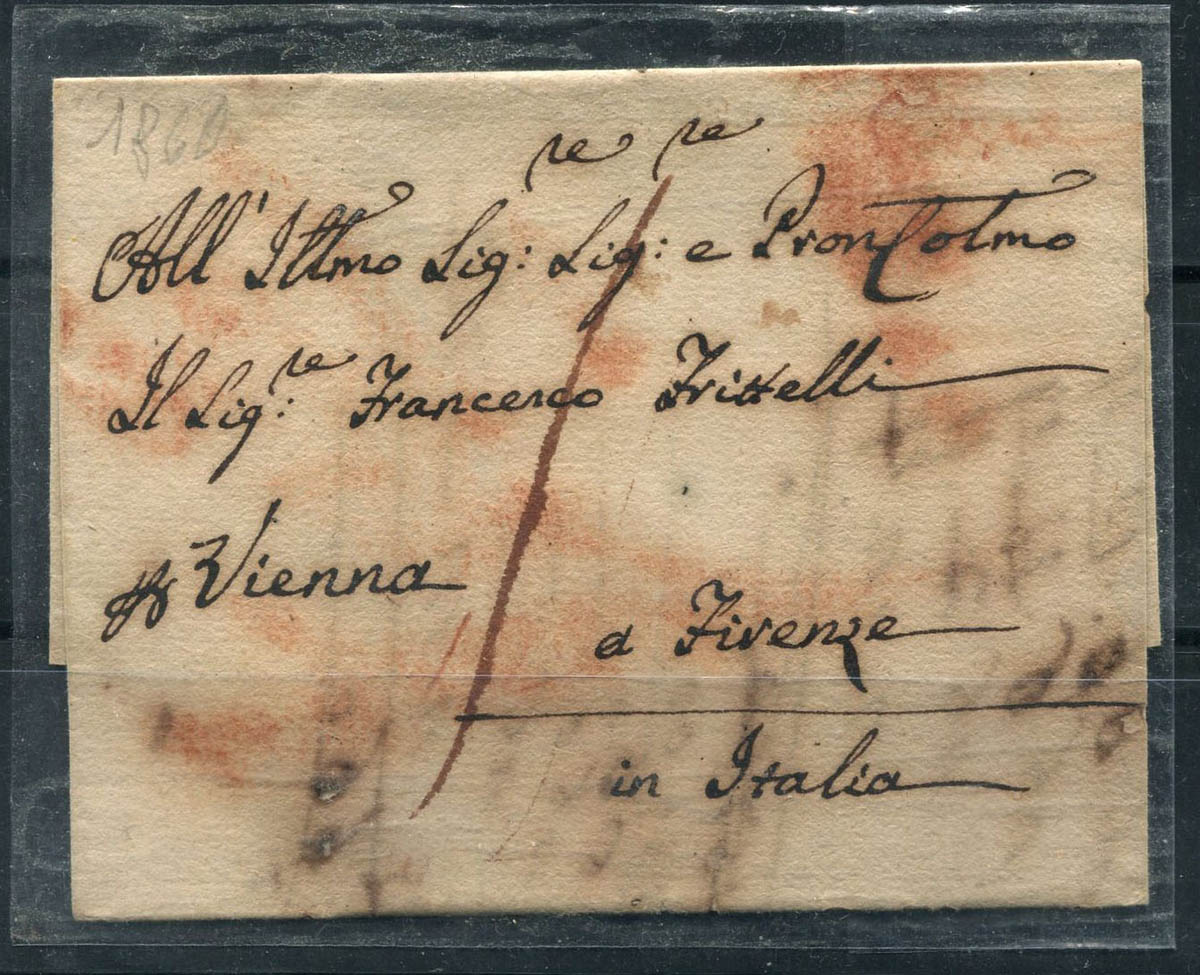 All' Illmo Sig:re Sig:re e Pron Colmo
Il Sig:re Francesco Frittelli
Vienna
a Firenze
in Italia